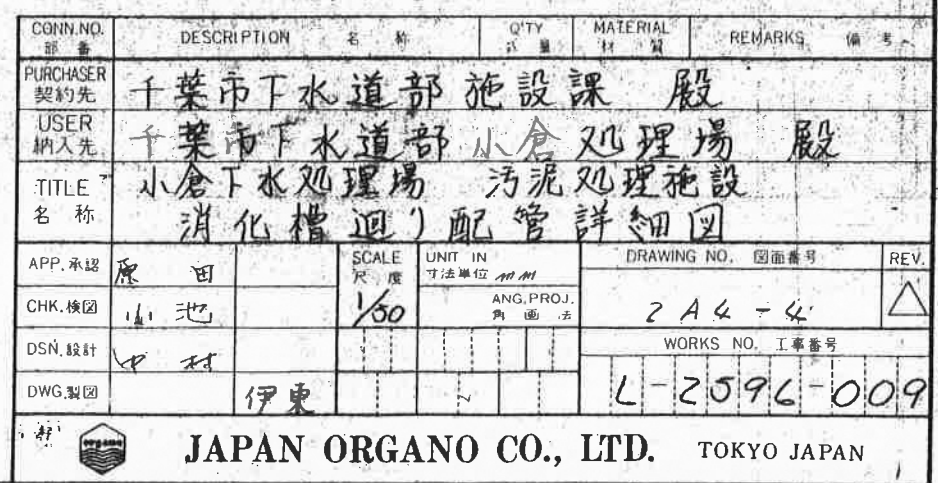 CONN.NO. 部番 DESCRIPTION 名称 Q'TY 式量 MATERIAL 材質 REMARKS 備考
PURCHASER 契約先 千葉市下水道部 施設課 殿
USER 納入先 千葉市下水道部 小倉処理場 殿
TITLE 名称 小倉下水処理場 汚泥処理施設
消化槽廻り配管詳細図
APP.承認 原田
CHK.検図 小池
DSN.設計 中村
DWG.製図 伊東
SCALE 尺度 1/50
UNIT IN 寸法単位 mm
ANG.PROJ. 角画法
DRAWING NO. 図面番号 2A4-4
REV.
WORKS NO. 工事番号 L-2596-009
organo
JAPAN ORGANO CO., LTD. TOKYO JAPAN